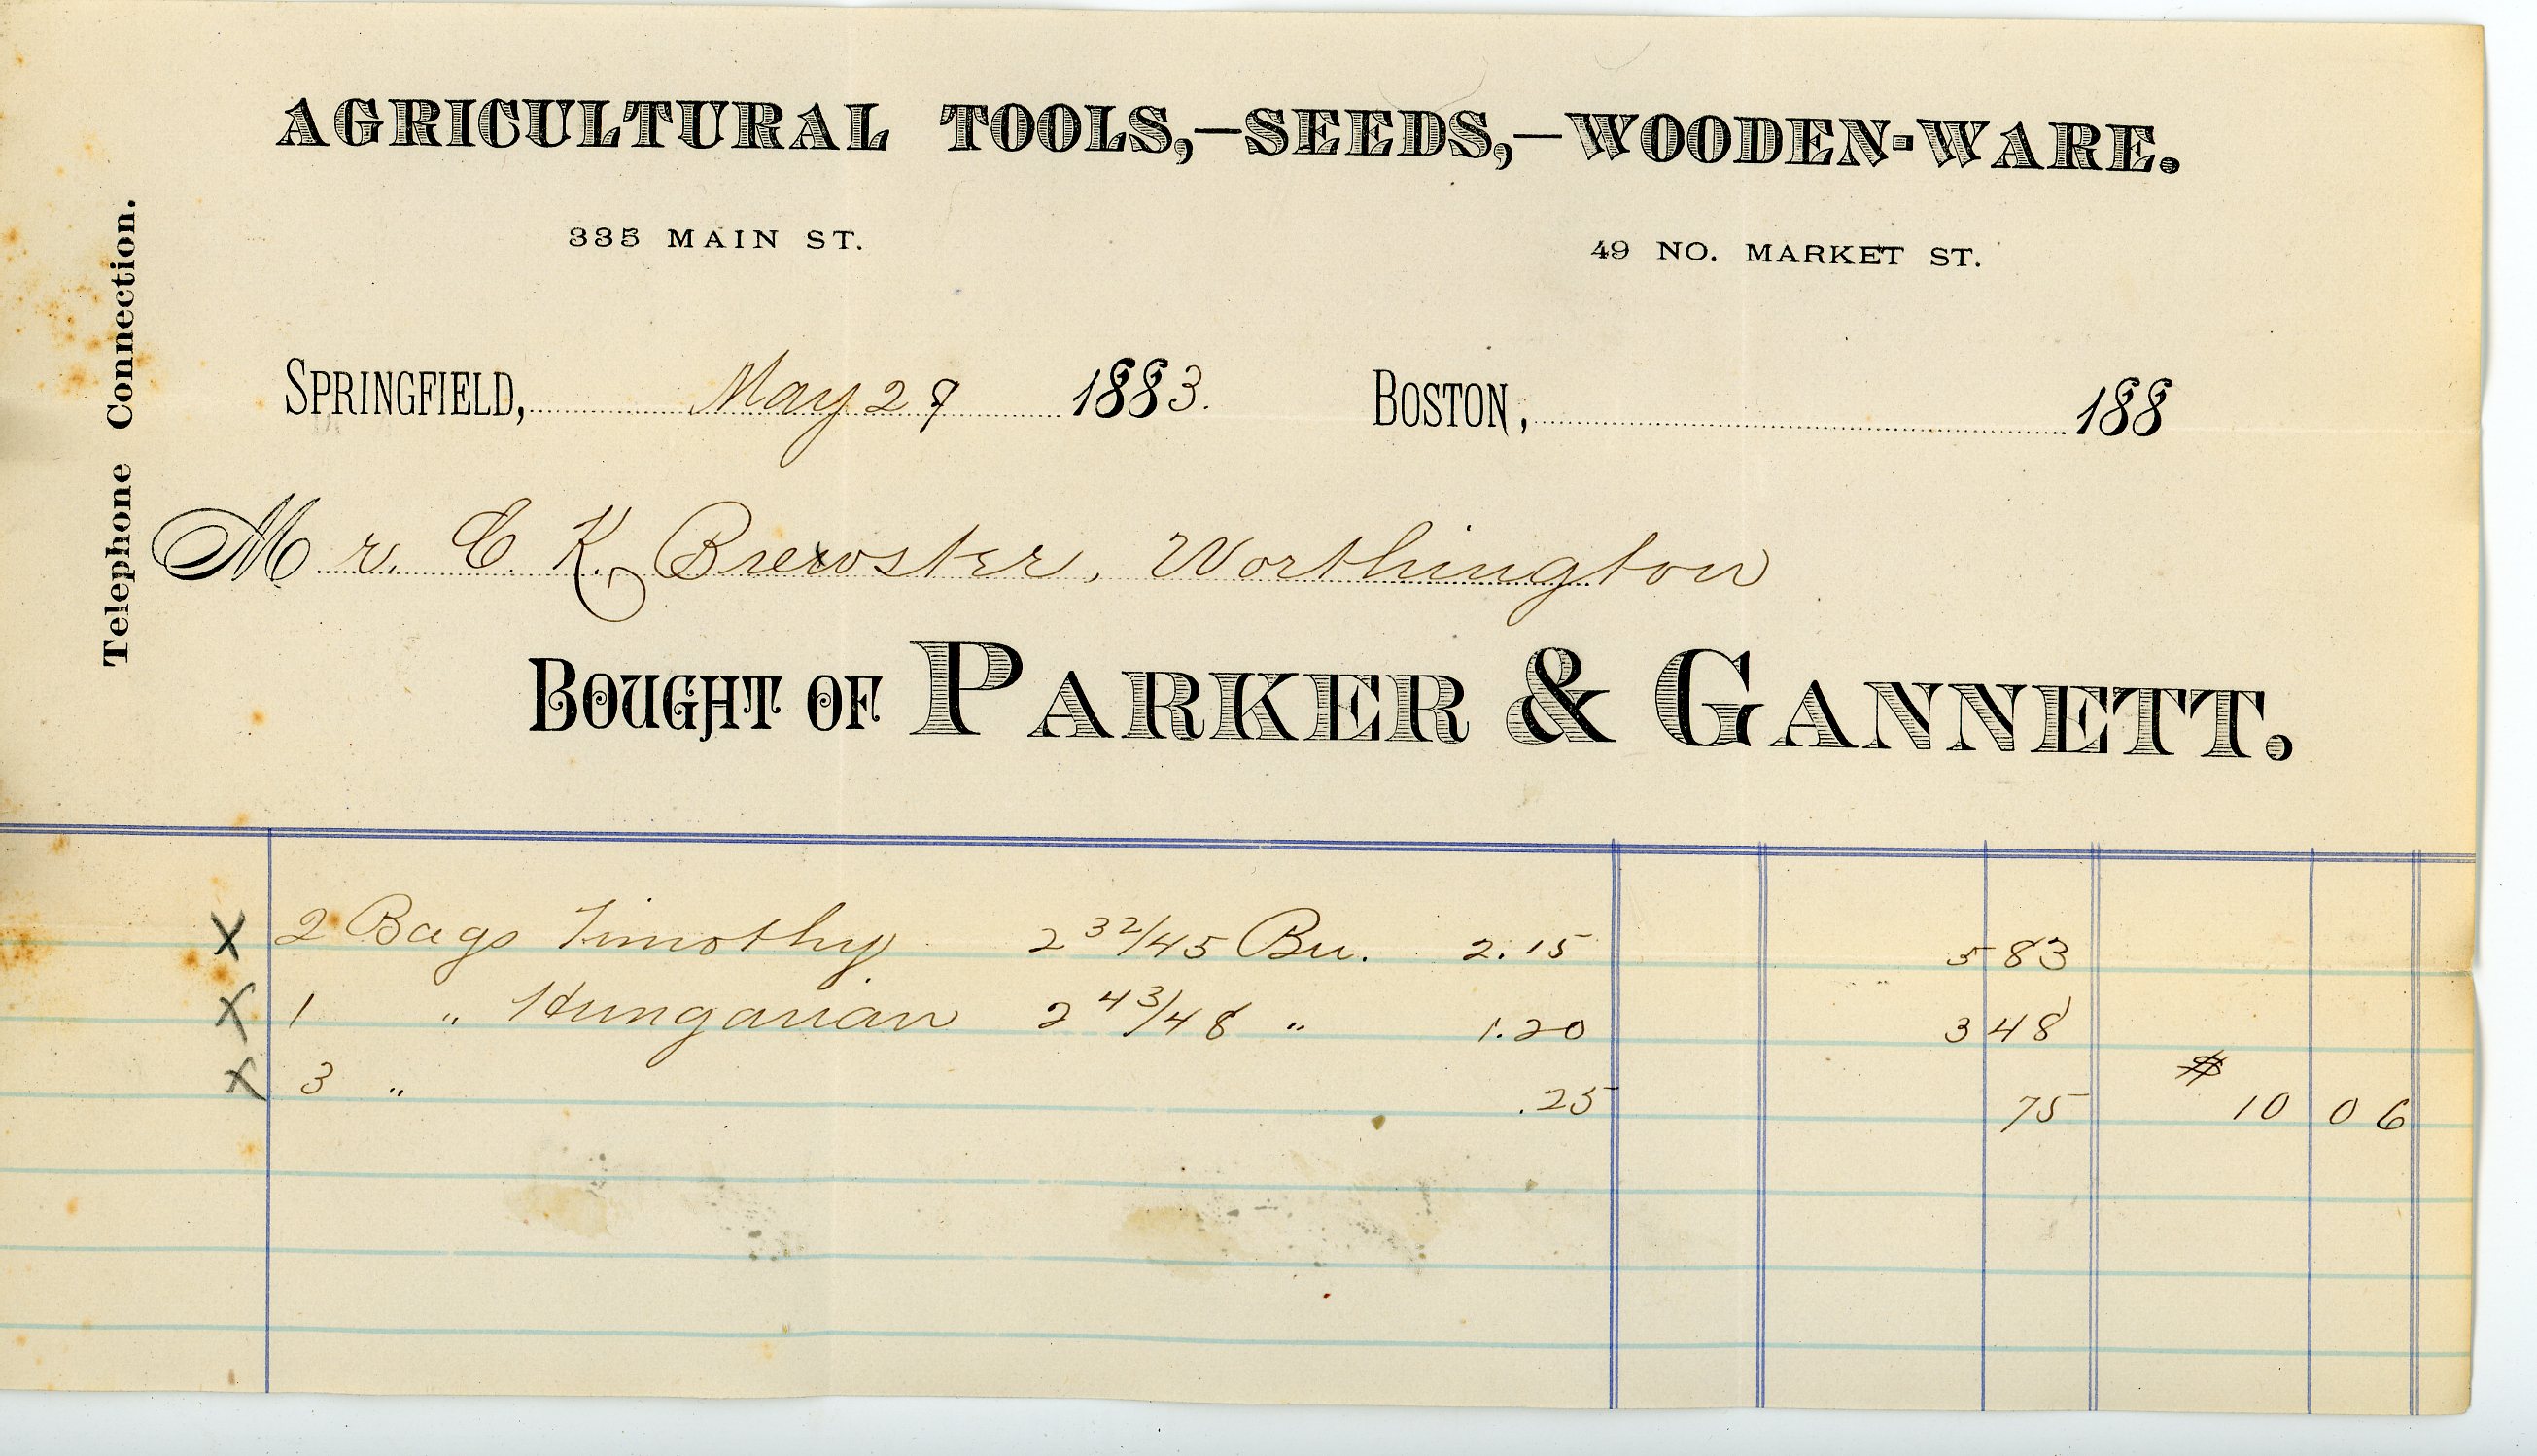 AGRICULTURAL TOOLS,—SEEDS,—WOODEN-WARE.
335 MAIN ST. 49 NO. MARKET ST.
Telephone Connection.
SPRINGFIELD, May 29 1883. BOSTON, 188
Mr. C. K. Brewster, Worthington
BOUGHT OF PARKER & GANNETT.
X 2 Bags Timothy 2 32/45 Bu. 2.15 5 83
X 1 " Hungarian 2 43/48 " 1.20 3 48
X 3 " .25 75 $ 10 06